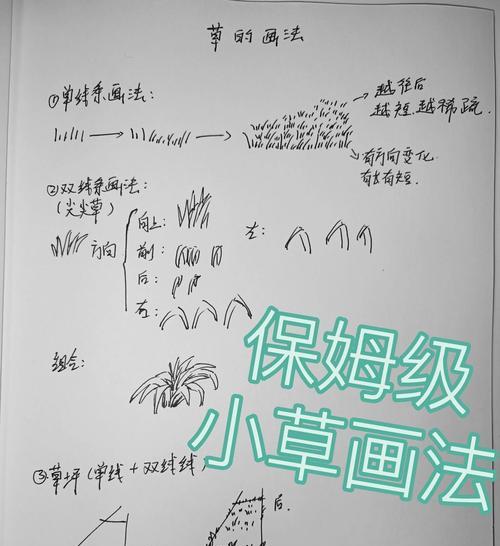 草的画法
①单线条画法:
越往后
越短.越稀疏.
有方向变化
有长有短.
②双线条画法:
(尖尖草)
方向
向上:
前:
后:
右:
左:
组合:
③草坪(单线+双线线)
后.
保姆级
小草画法